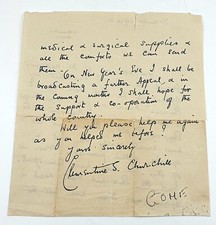 medical & surgical supplies &
all the comforts we can send
them. On New Year's Eve I shall be
broadcasting a further Appeal, & in
the coming matter I shall hope for
the support & co-operation of the
whole country.
Will you please help me again
as you helped me before?
Yours sincerely
Clementine S. Churchill